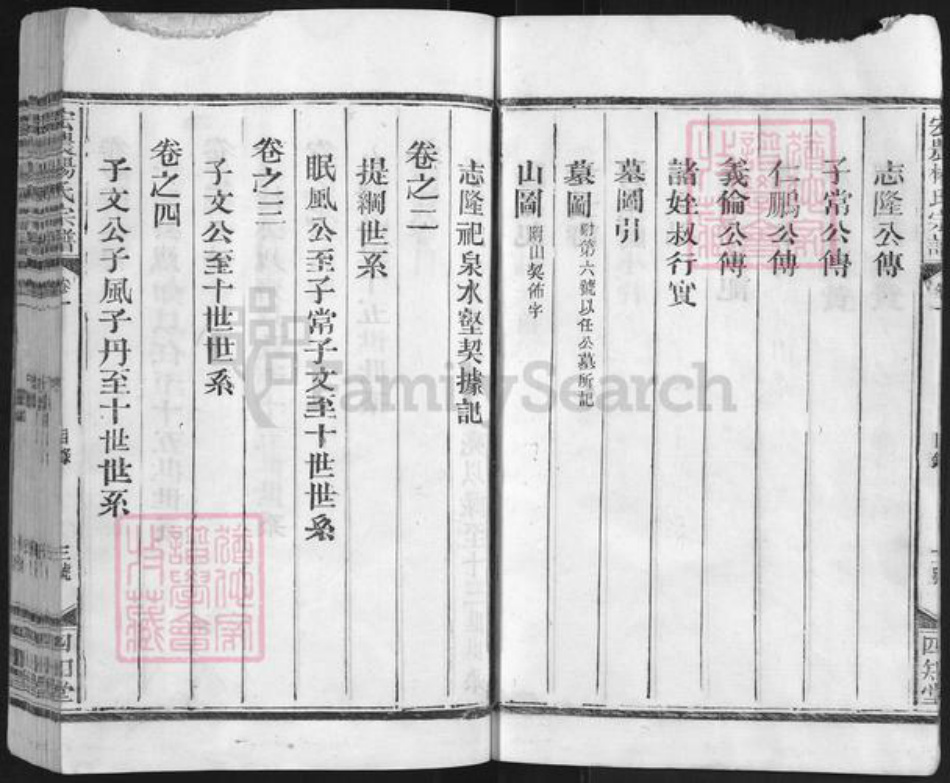 志隆公傳
子常公傳
仁鵬公傳
義倫公傳
諸姪叔行實
墓圖引
墓圖 附第六號以任公墓所記
山圖 附山契佈字
志隆祀泉水壑契據記
卷之二
提綱世系
眠風公至子常子文至十世世系
卷之三
子文公至十世世系
卷之四
子文公子風子丹至十世世系
目錄
三號
四知堂
FamilySearch